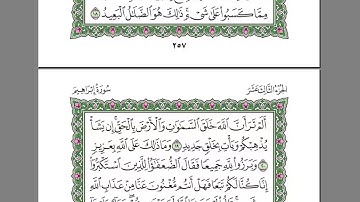 مِمَّا كَسَبُوا۟ عَلَىٰ شَىْءٍۢ ۚ ذَٰلِكَ هُوَ ٱلضَّلَـٰلُ ٱلْبَعِيدُ ١٨
٢٥٧
الجزء الثالث عشر
سورة إبراهيم
أَلَمْ تَرَ أَنَّ ٱللَّهَ خَلَقَ ٱلسَّمَـٰوَٰتِ وَٱلْأَرْضَ بِٱلْحَقِّ ۚ إِن يَشَأْ
يُذْهِبْكُمْ وَيَأْتِ بِخَلْقٍۢ جَدِيدٍۢ ١٩ وَمَا ذَٰلِكَ عَلَى ٱللَّهِ بِعَزِيزٍۢ
٢٠ وَبَرَزُوا۟ لِلَّهِ جَمِيعًۭا فَقَالَ ٱلضُّعَفَـٰٓؤُا۟ لِلَّذِينَ ٱسْتَكْبَرُوٓا۟
إِنَّا كُنَّا لَكُمْ تَبَعًۭا فَهَلْ أَنتُم مُّغْنُونَ عَنَّا مِنْ عَذَابِ ٱللَّهِ